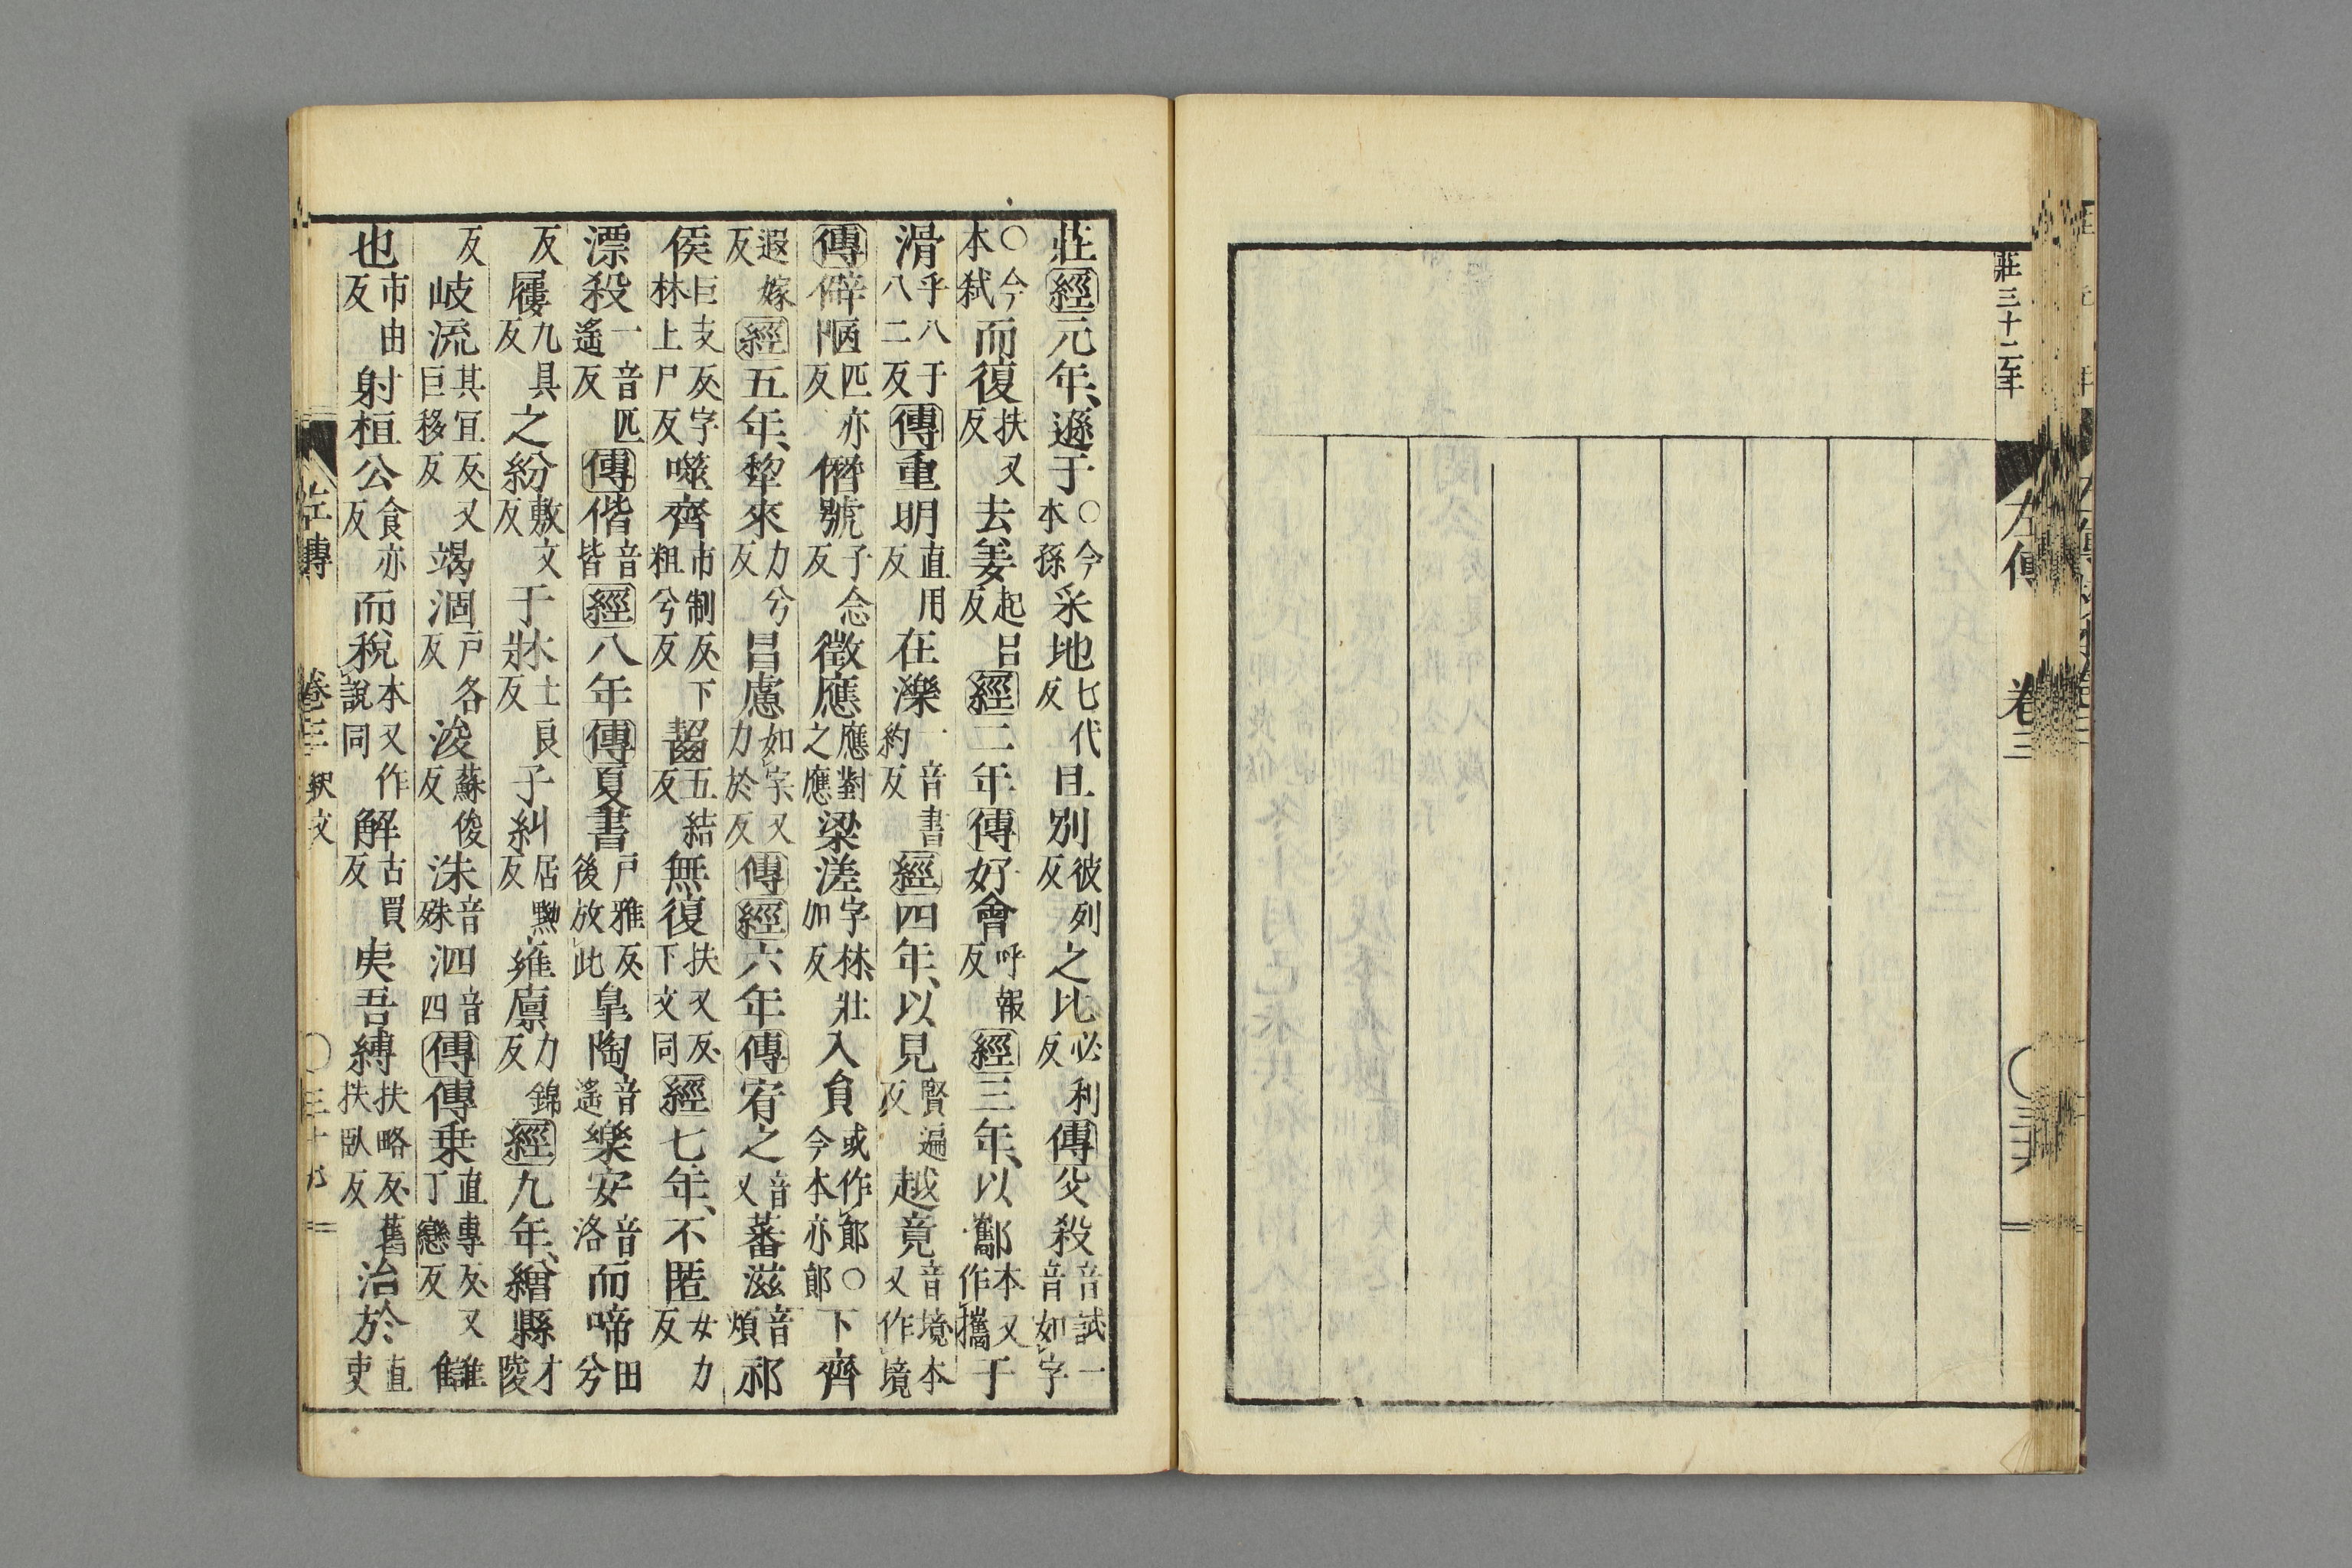 莊三十二年
左傳 卷三
莊經元年、遜于○今本孫采地七代反且別彼列反之比必利反傳父殺音試一音如字
○今本弑而復扶又反去姜起呂反經二年傳好會呼報反經三年、以酅本又作攜于
滑乎八反于八二反傳重明直用反在濼一音書約反經四年、以見賢遍反越竟音境本又作境
傳僻陋匹亦反僭號子念反徵應應對之應梁溠字林壯加反入䝿或作郎○今本亦郎下齊
遐嫁反經五年、犂來力兮反昌慮如字又力於反傳經六年傳宥之音又蕃滋音煩祁
侯巨支反字林上尸反噬齊市制反下粗兮反齧五結反無復扶又反下文同經七年、不匿女力反
漂殺一音匹遙反傳偕音皆經八年傳夏書戶雅反後放此皐陶音遙樂安音洛而啼田兮
反屨九具反之紛敷文反于牀士良反子糾居黝反雍廩力錦反經九年、繒縣才陵
反岐流其宜反又巨移反竭涸戶各反浚蘇俊反洙音殊泗音四傳傳乗直專反又丁戀反讎
也市由反射桓公食亦反而稅本又作說同解古買反夷吾縛扶略反舊扶臥反治於直吏
左傳 卷三 釈文 ○三十九